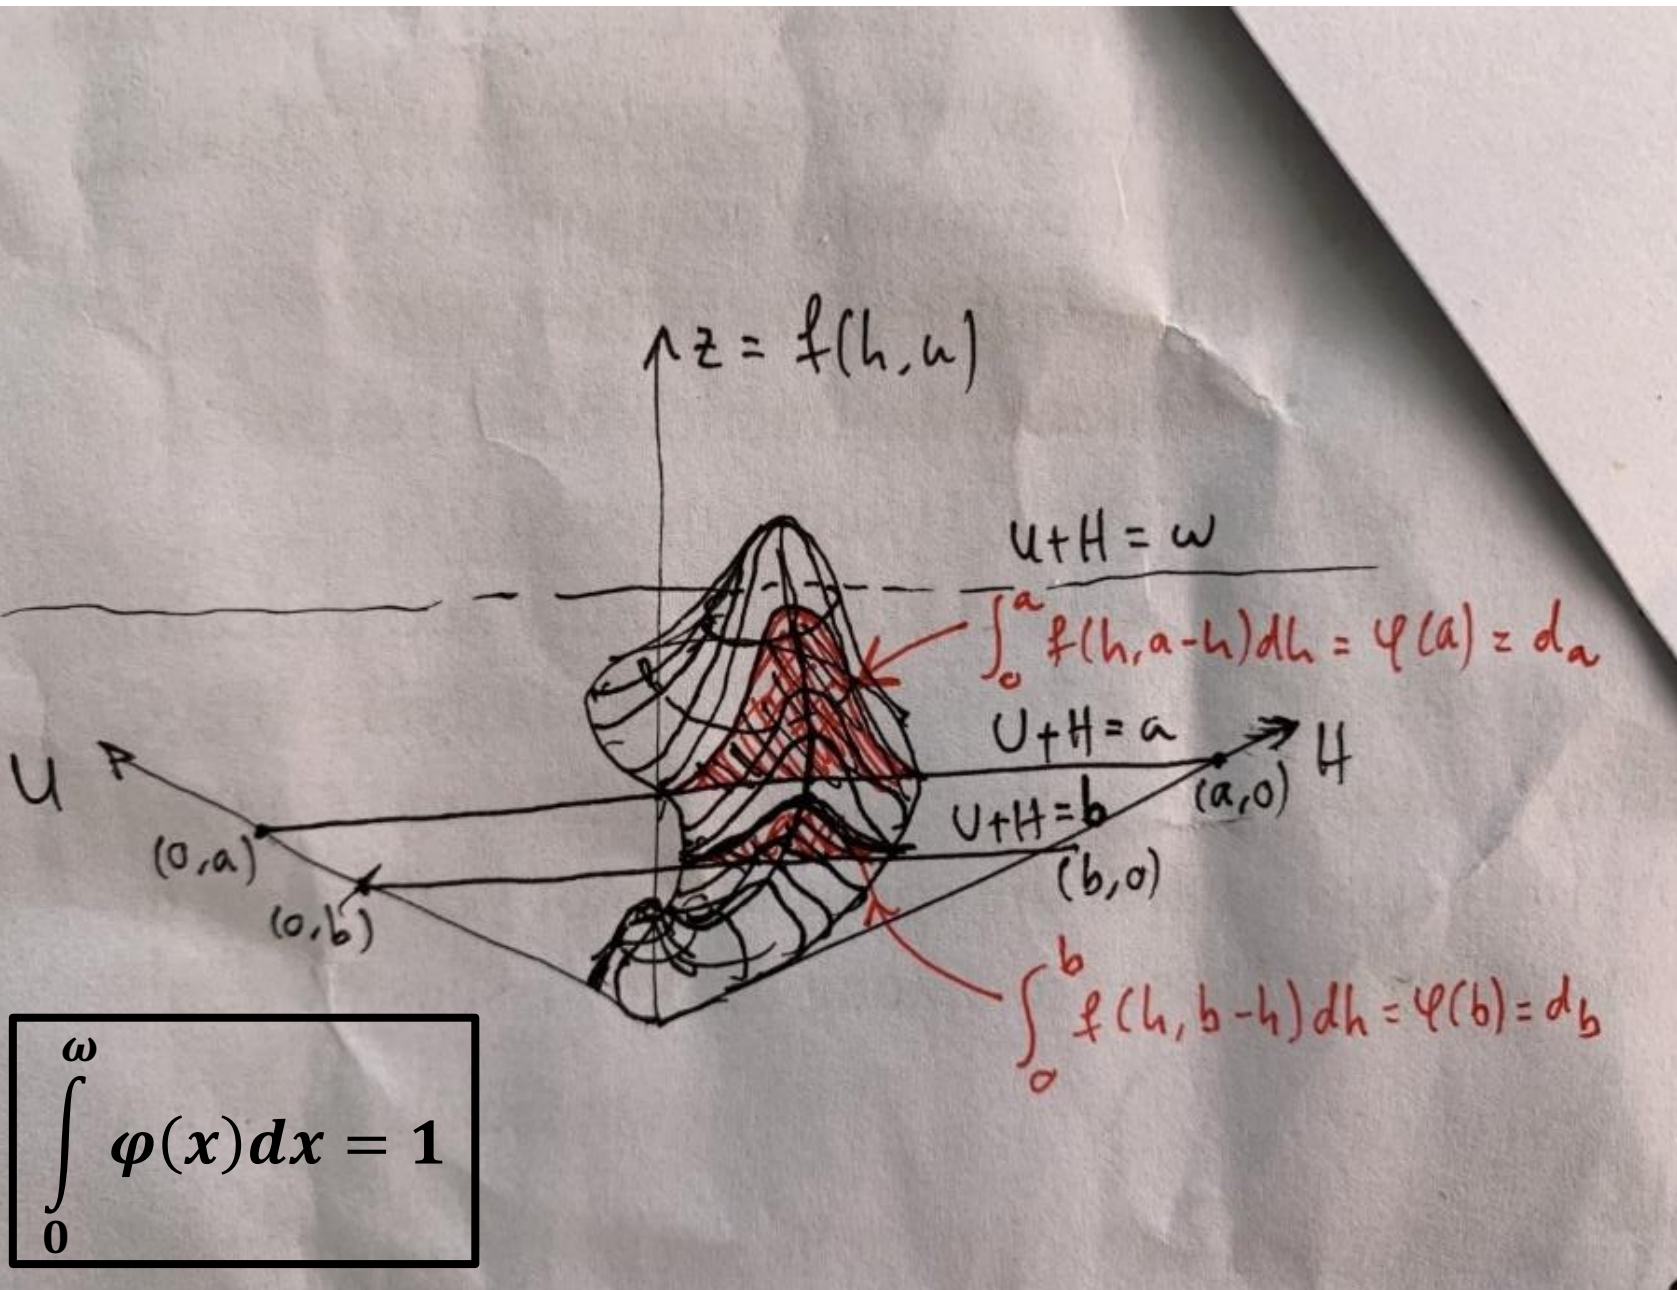 z = f(h,u)
U+H = ω
∫₀ᵃ f(h,a-h)dh = φ(a) = dₐ
U+H = a
U
H
(a,0)
U+H = b
(0,a)
(b,0)
(0,b)
∫₀ᵇ f(h,b-h)dh = φ(b) = d_b
∫₀^ω φ(x)dx = 1